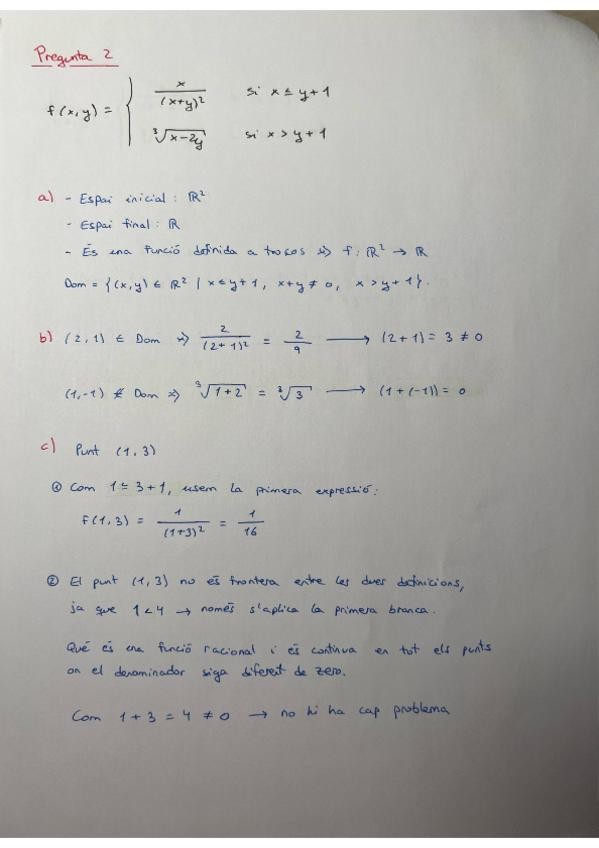 Pregunta 2
f(x,y) = { x/(x+y)² si x ≤ y+1
∛(x-2y) si x > y+1
a) - Espai inicial : ℝ²
- Espai final : ℝ
- És una funció definida a trosos ⇒ f: ℝ² → ℝ
Dom = {(x,y) ∈ ℝ² / x ≤ y+1, x+y ≠ 0, x > y+1}.
b) (2,1) ∈ Dom ⇒ 2/(2+1)² = 2/9 ⟶ (2+1) = 3 ≠ 0
(1,-1) ∉ Dom ⇒ ∛(1+2) = ∛3 ⟶ (1+(-1)) = 0
c) Punt (1,3)
① Com 1 ≤ 3+1, usem la primera expressió:
f(1,3) = 1/(1+3)² = 1/16
② El punt (1,3) no és frontera entre les dues definicions,
ja que 1<4 → només s'aplica la primera branca.
Què és una funció racional i és contínua en tot els punts
on el denominador siga diferent de zero.
Com 1+3 = 4 ≠ 0 → no hi ha cap problema